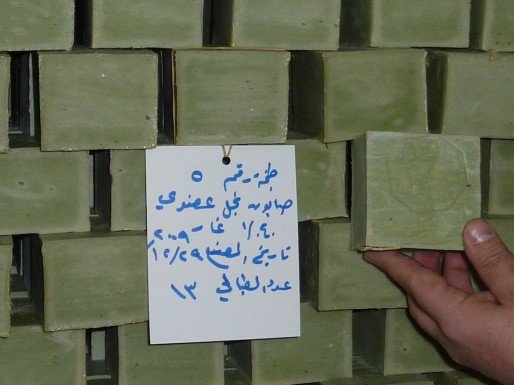 طبخة رقم ٥
صابون عضوي
٤٠٪ غار ٢٠٠٩
تاريخ الصنع ١٢/٢٩
عدد الطبالي ١٣